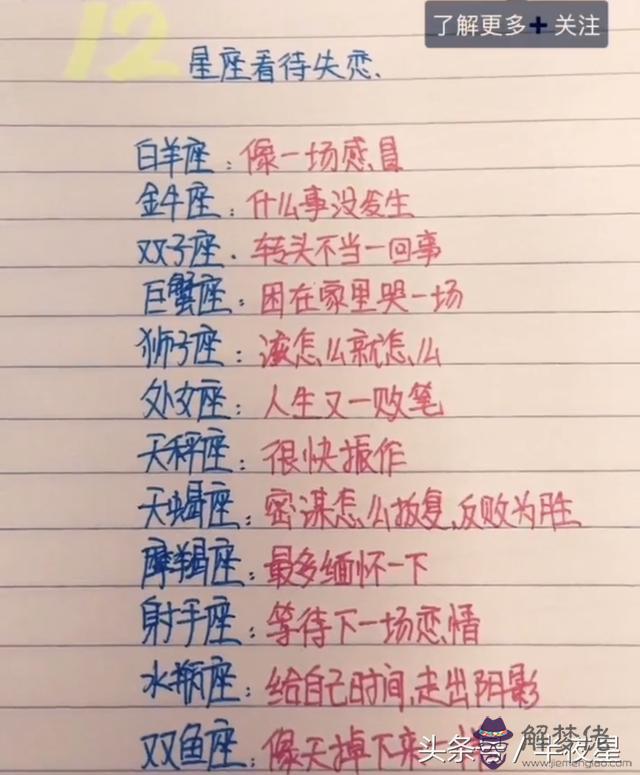 了解更多+关注
12
星座看待失恋.
白羊座：像一场感冒
金牛座：什么事没发生
双子座．转头不当一回事
巨蟹座：困在家里哭一场
狮子座：该怎么就怎么
处女座：人生又一败笔
天秤座：很快振作
天蝎座：密谋怎么报复,反败为胜
摩羯座：最多缅怀一下
射手座：等待下一场恋情
水瓶座：给自己时间,走出阴影
双鱼座：像天掉下来
头条号／半夜星
解梦佬
www.jiemenglao.com